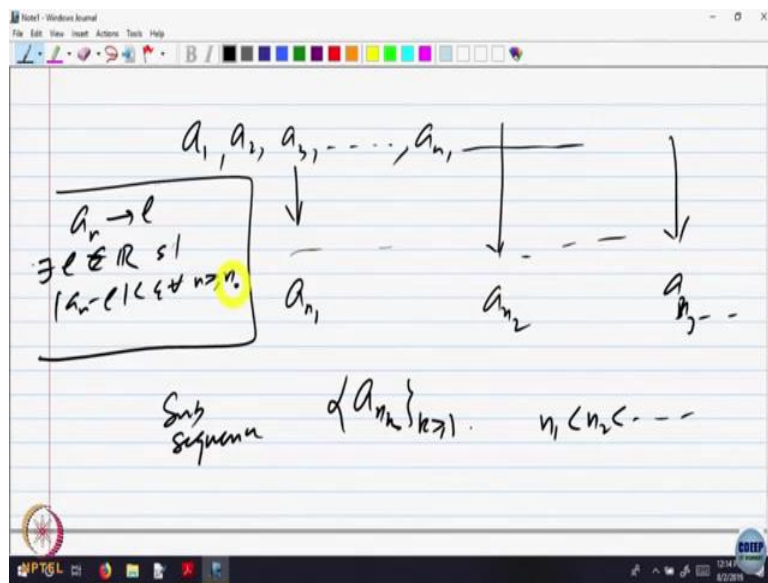 Note1 - Windows Journal
File Edit View Insert Actions Tools Help
B I
a₁, a₂, a₃, - - - - -, aₙ, ————
aₙ → l
∃ l ∈ ℝ s t
|aₙ - l| < ε ∀ n ≥ n₀
aₙ₁ aₙ₂ aₙ₃ - -
Sub
sequence
{aₙₖ}ₖ≥₁. n₁ < n₂ < - - - -
NPTEL
CDEEP
IIT BOMBAY
8/2/2018